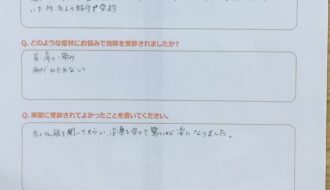 いた所 友人の紹介で受診
Q. どのような症状にお悩みで当院を受診されましたか？
首・肩の痛み
Q. 実際に受診されてよかったことを書いてください。
たくさん話を聞いてもらい、治療を受けて驚くほど楽になりました。